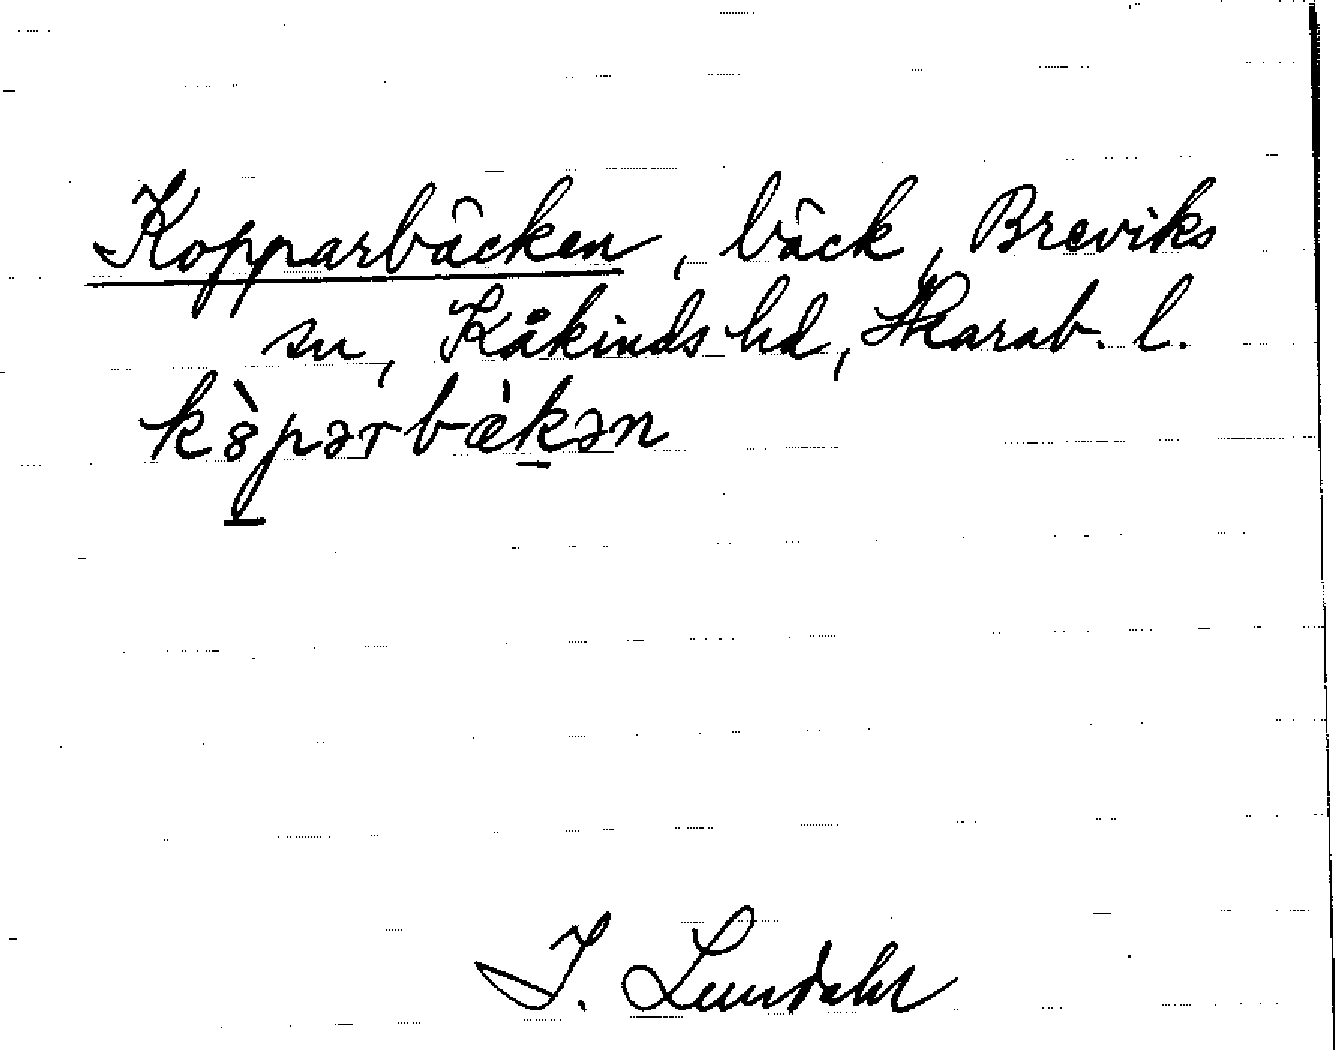 Kopparbäcken, bäck, Breviks
sn, Kåkinds hd, Skarab. l.
kòpərbä̀kən
I. Lundahl